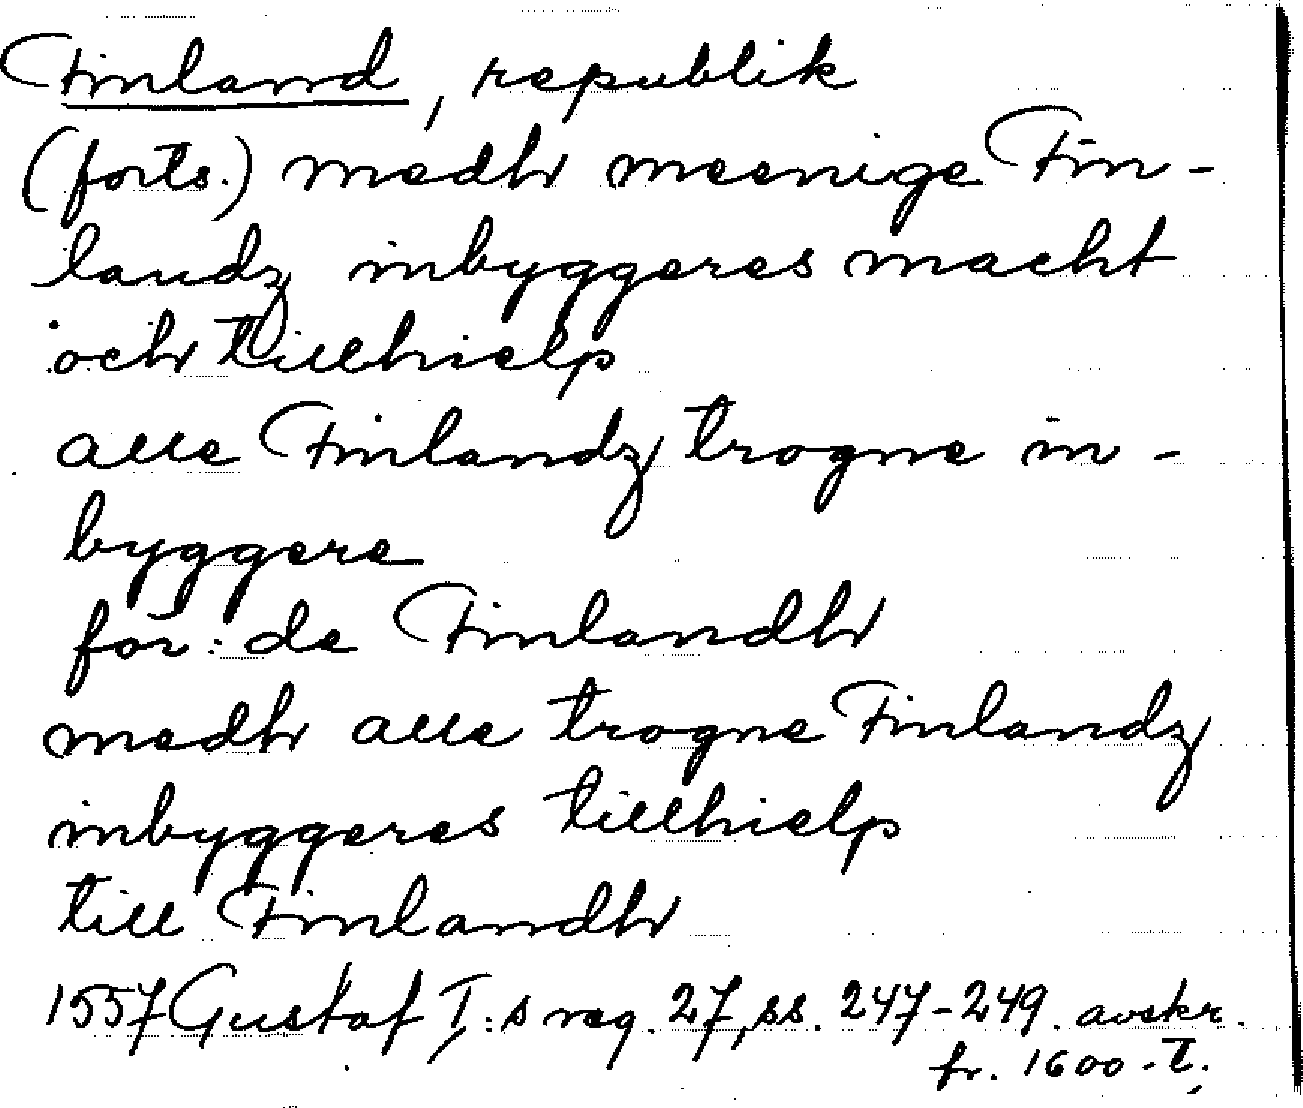 Finland, republik
(forts.) medh meenige Fin-
landz inbyggeres macht
och tillhielp
alle Finlandz trogne in-
byggere
för: de Finlandh
medh alle trogne Finlandz
inbyggeres tillhielp
till Finlandh
1557 Gustaf I:s reg. 27, ss. 247-249. avskr.
fr. 1600-t.